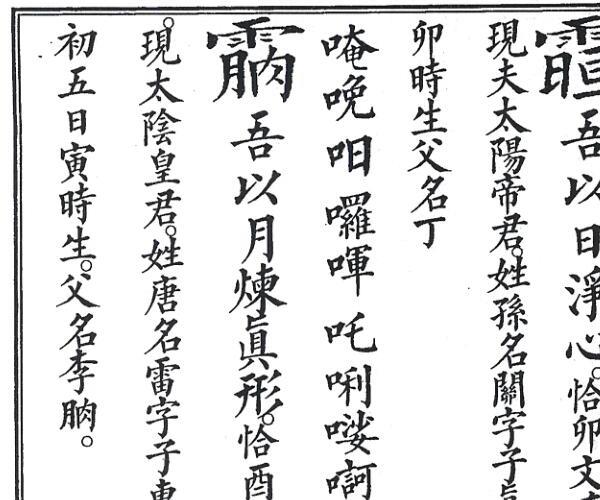 吾以日淨心。恰卯文
現夫太陽帝君。姓孫名關字子
卯時生父名丁
唵晚呬囉喗吒唎嘙
吾以月煉眞形。恰酉
。現太陰皇君。姓唐名雷字子
初五日寅時生。父名李肭。